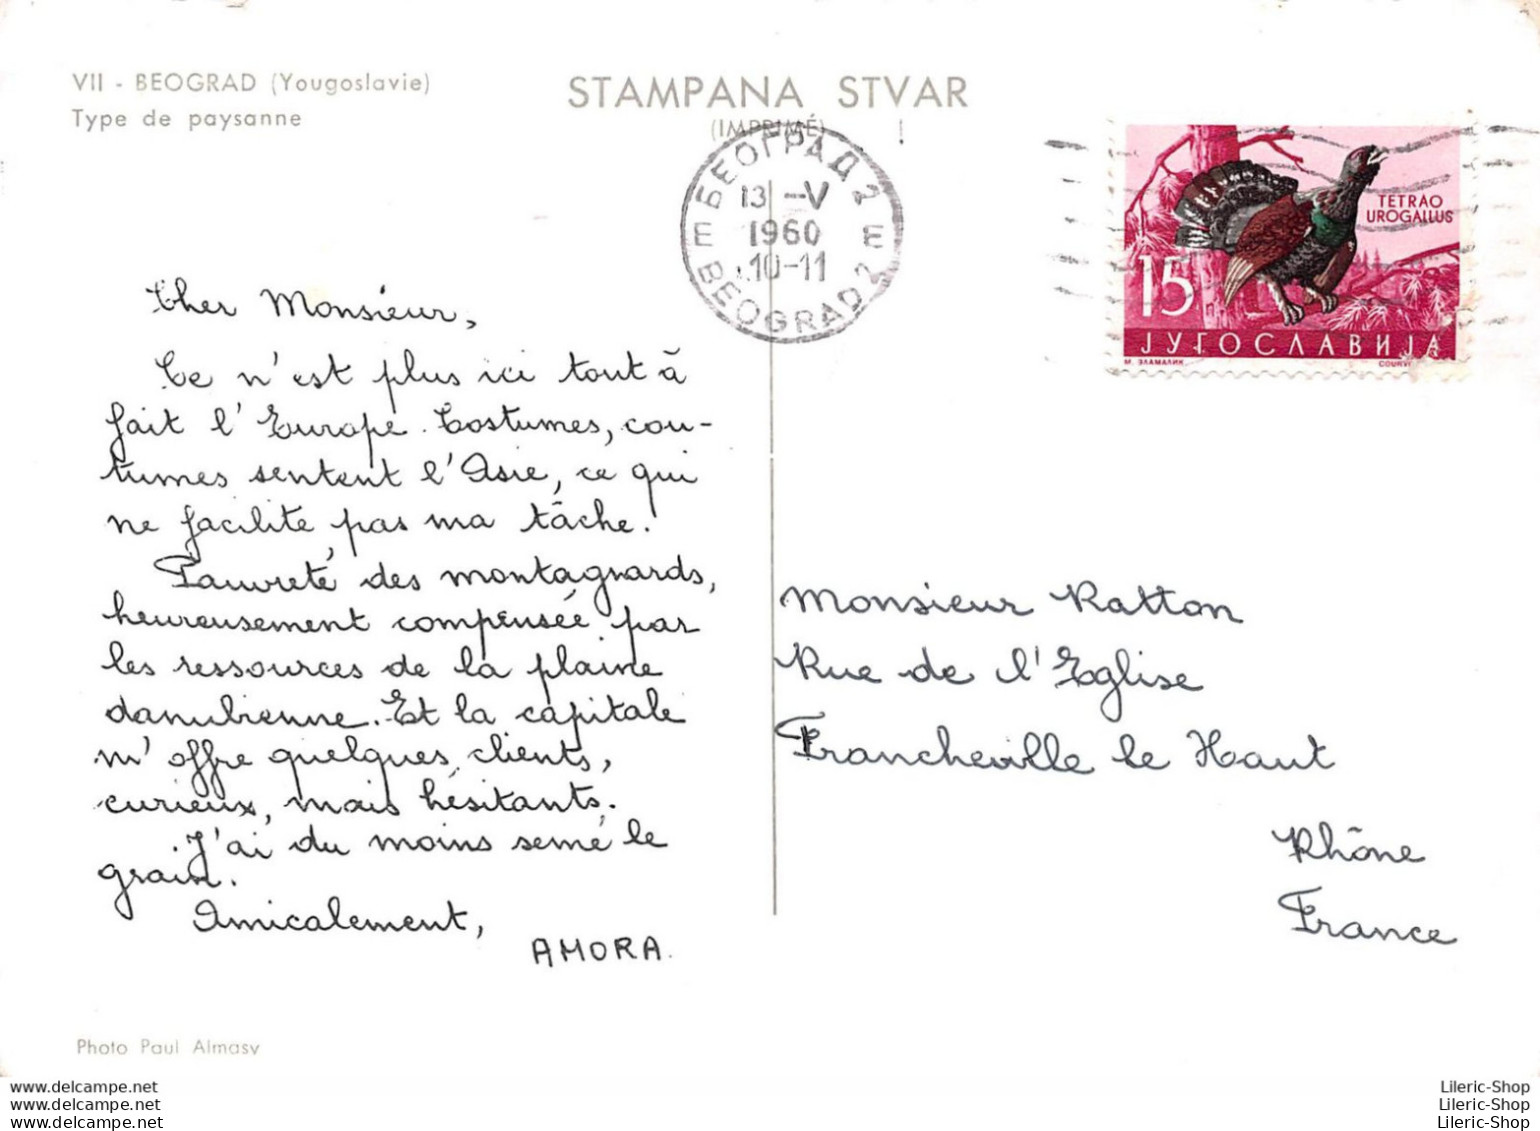 VII - BEOGRAD (Yougoslavie)
Type de paysanne
STAMPANA STVAR
(IMPRIMÉ)
БЕОГРАД 2
13 -V
1960
10-11
E E
BEOGRAD 2
TETRAO
UROGALLUS
15
ЈУГОСЛАВИЈА
М. ЗЛАМАЛИК
Cher Monsieur,
Ce n'est plus ici tout à
fait l'Europe. Costumes, cou-
tumes sentent l'Asie, ce qui
ne facilite pas ma tâche.
Pauvreté des montagnards,
heureusement compensée par
les ressources de la plaine
danubienne. Et la capitale
m'offre quelques clients,
curieux, mais hésitants.
J'ai du moins semé le
grain.
Amicalement,
AMORA.
Monsieur Ratton
Rue de l'Eglise
Francheville le Haut
Rhône
France
Photo Paul Almasy
www.delcampe.net
www.delcampe.net
www.delcampe.net
Lileric-Shop
Lileric-Shop
Lileric-Shop